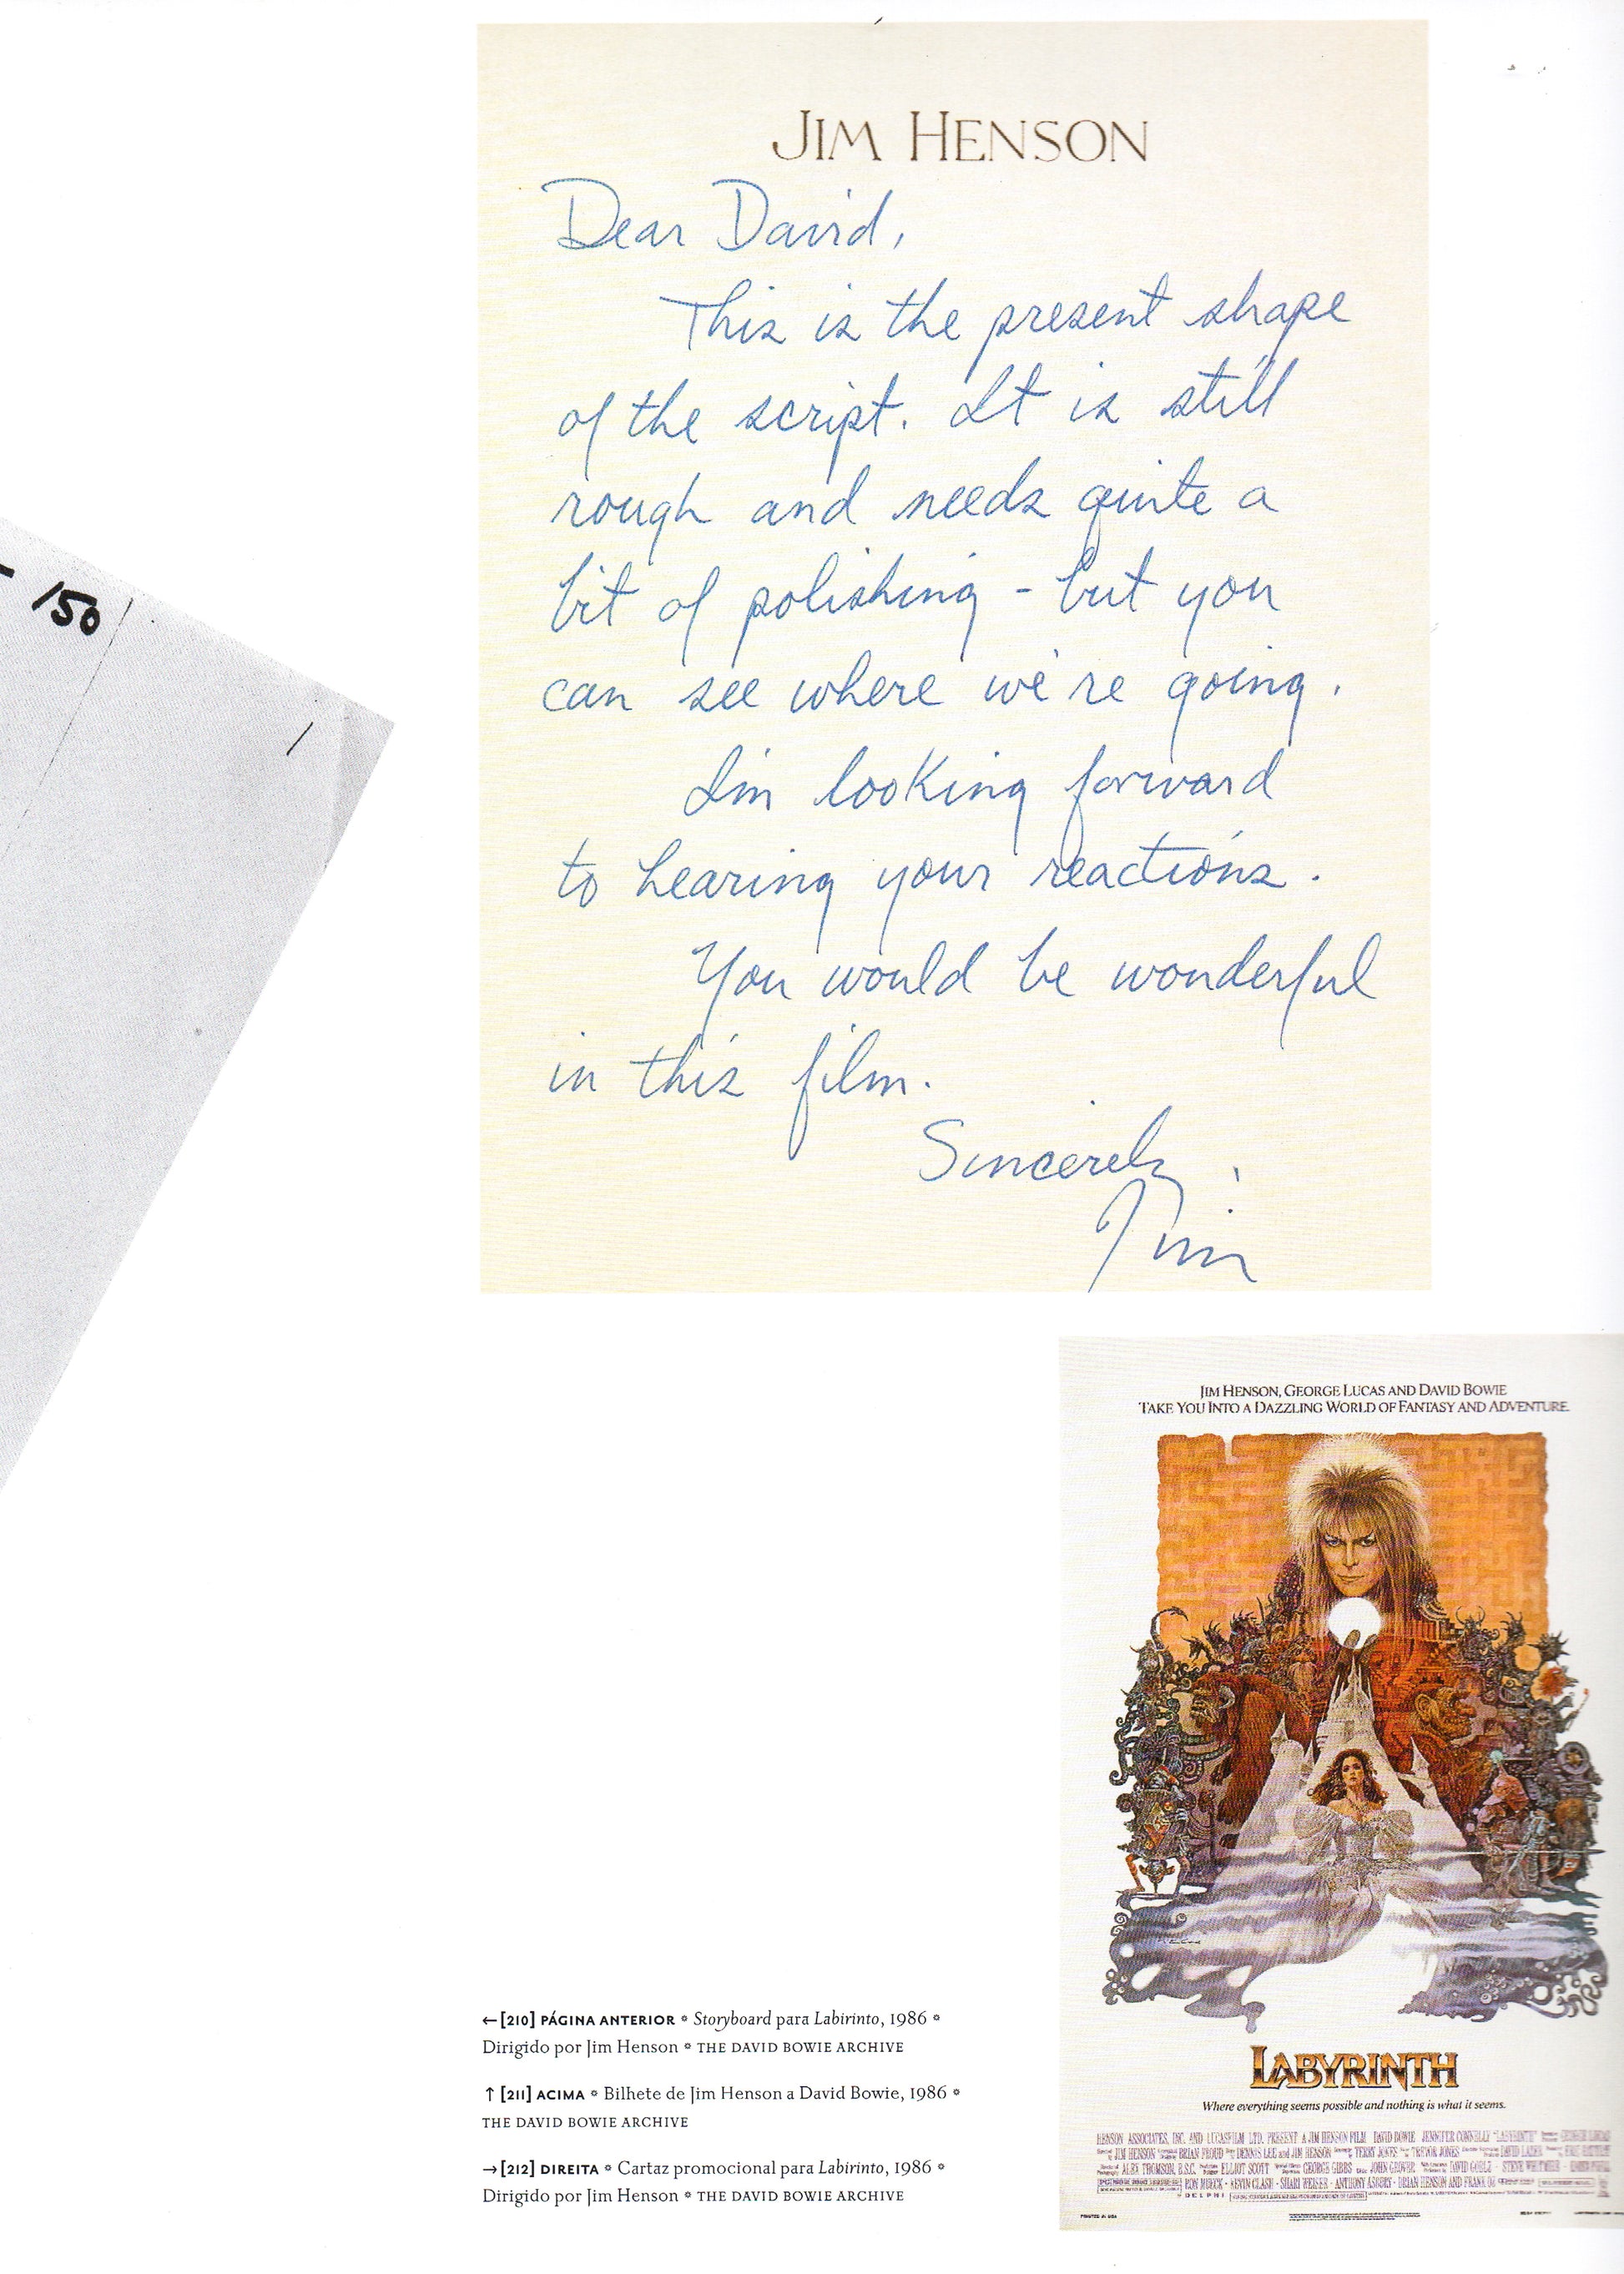 150
JIM HENSON
Dear David,
This is the present shape
of the script. It is still
rough and needs quite a
bit of polishing - but you
can see where we're going.
I'm looking forward
to hearing your reactions.
You would be wonderful
in this film.
Sincerely,
Jim
JIM HENSON, GEORGE LUCAS AND DAVID BOWIE
TAKE YOU INTO A DAZZLING WORLD OF FANTASY AND ADVENTURE.
LABYRINTH
Where everything seems possible and nothing is what it seems.
HENSON ASSOCIATES, INC. AND LUCASFILM LTD. PRESENT A JIM HENSON FILM DAVID BOWIE JENNIFER CONNELLY "LABYRINTH"
JIM HENSON BRIAN FROUD DENNIS LEE and JIM HENSON TERRY JONES TREVOR JONES DAVID LAZER
ALEX THOMSON, B.S.C. ELLIOT SCOTT GEORGE GIBBS JOHN GROVER DAVID GOELZ STEVE WHITMIRE
RON MUECK KEVIN CLASH SHARI WEISER ANTHONY ASBURY BRIAN HENSON AND FRANK OZ
DELPHI
← [210] PÁGINA ANTERIOR * Storyboard para Labirinto, 1986 *
Dirigido por Jim Henson * THE DAVID BOWIE ARCHIVE
↑ [211] ACIMA * Bilhete de Jim Henson a David Bowie, 1986 *
THE DAVID BOWIE ARCHIVE
→ [212] DIREITA * Cartaz promocional para Labirinto, 1986 *
Dirigido por Jim Henson * THE DAVID BOWIE ARCHIVE